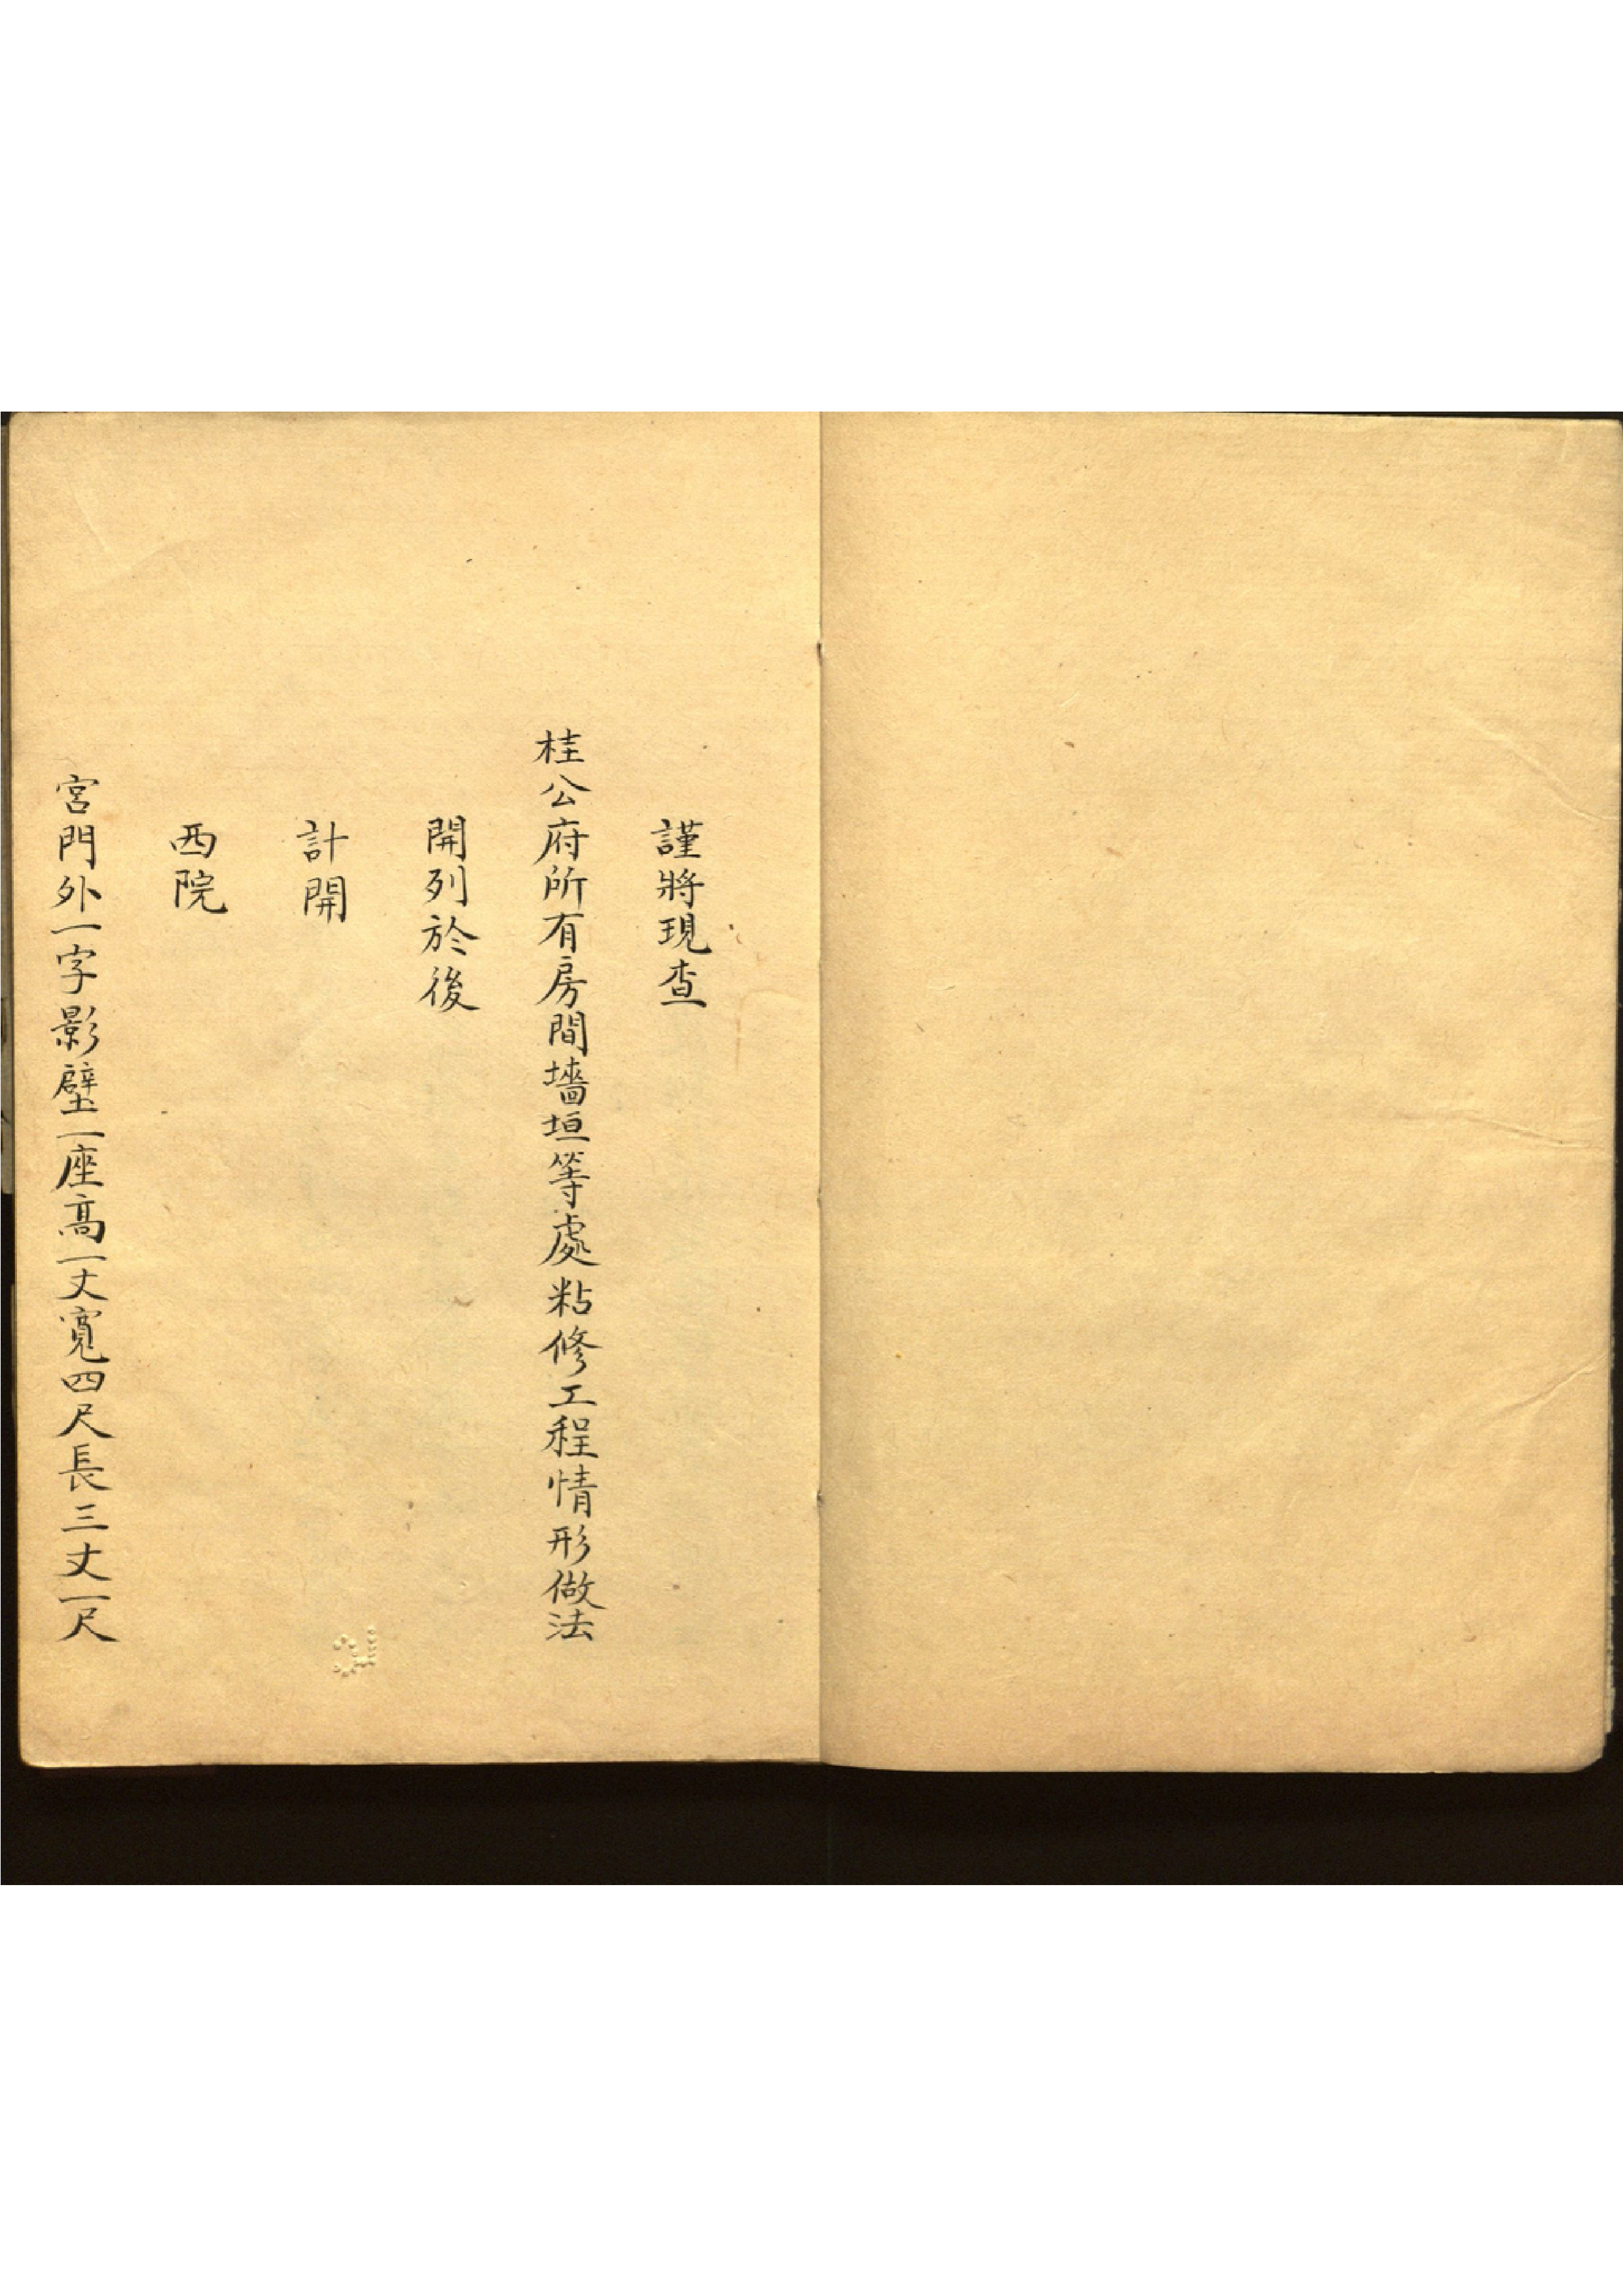 謹將現查
桂公府所有房間墻垣等處粘修工程情形做法
開列於後
計開
西院
宮門外一字影壁一座高一丈寬四尺長三丈一尺